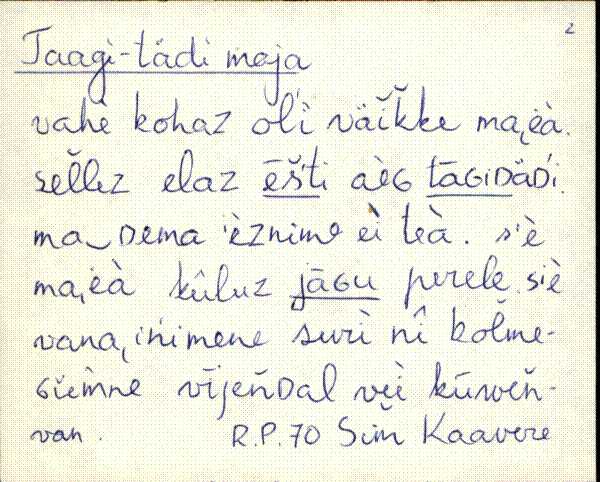 2
Taagi-tädi maja
vahè kohaz ol'i väikke ma̮èà.
sellez elaz ēs̆ti aèG tāGIDäD́i.
ma‿Dema ièznime ei teà. s'è
ma̮èà kûluz jāGu perele. s'iè
vana̮inimene suri nî kolme-
Gièmne vījenDal veì
van. R.P.70 Siim Kaavere